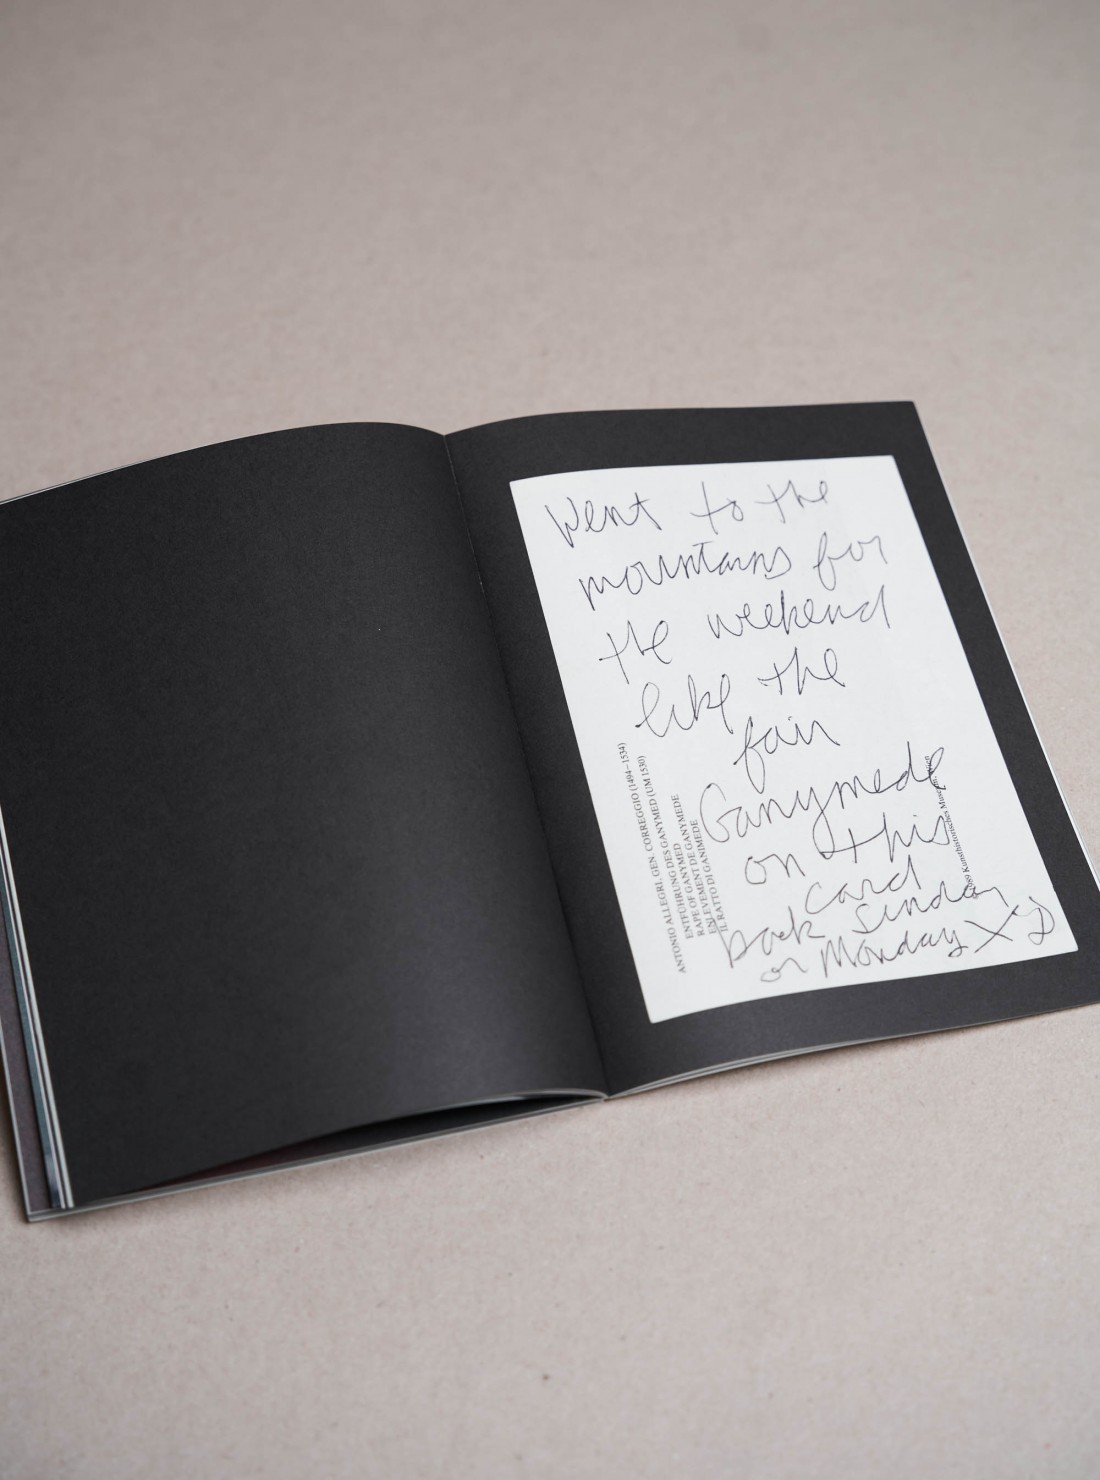 Went to the
mountains for
the weekend
like the
fair
Ganymede
on this
card
back Sunday
or Monday X D
ANTONIO ALLEGRI, GEN. CORREGGIO (1494–1534)
ENTFÜHRUNG DES GANYMED (UM 1530)
RAPE OF GANYMED
ENLEVEMENT DE GANYMEDE
IL RATTO DI GANIMEDE
Kunsthistorisches